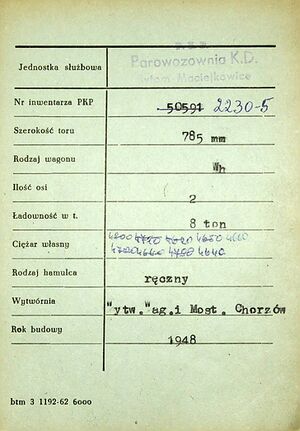 P.K.P.
Jednostka służbowa Parowozownia K.D.
Bytom-Maciejkowice
Nr inwentarza PKP 50591 2230-5
Szerokość toru 785 mm
Rodzaj wagonu Wh
Ilość osi 2
Ładowność w t. 8 ton
Ciężar własny 4200 4720 4620 4650 4660
4720 4640 4750 4640
Rodzaj hamulca ręczny
Wytwórnia "ytw."ag.i Most. Chorzów
Rok budowy 1948
btm 3 1192-62 6000